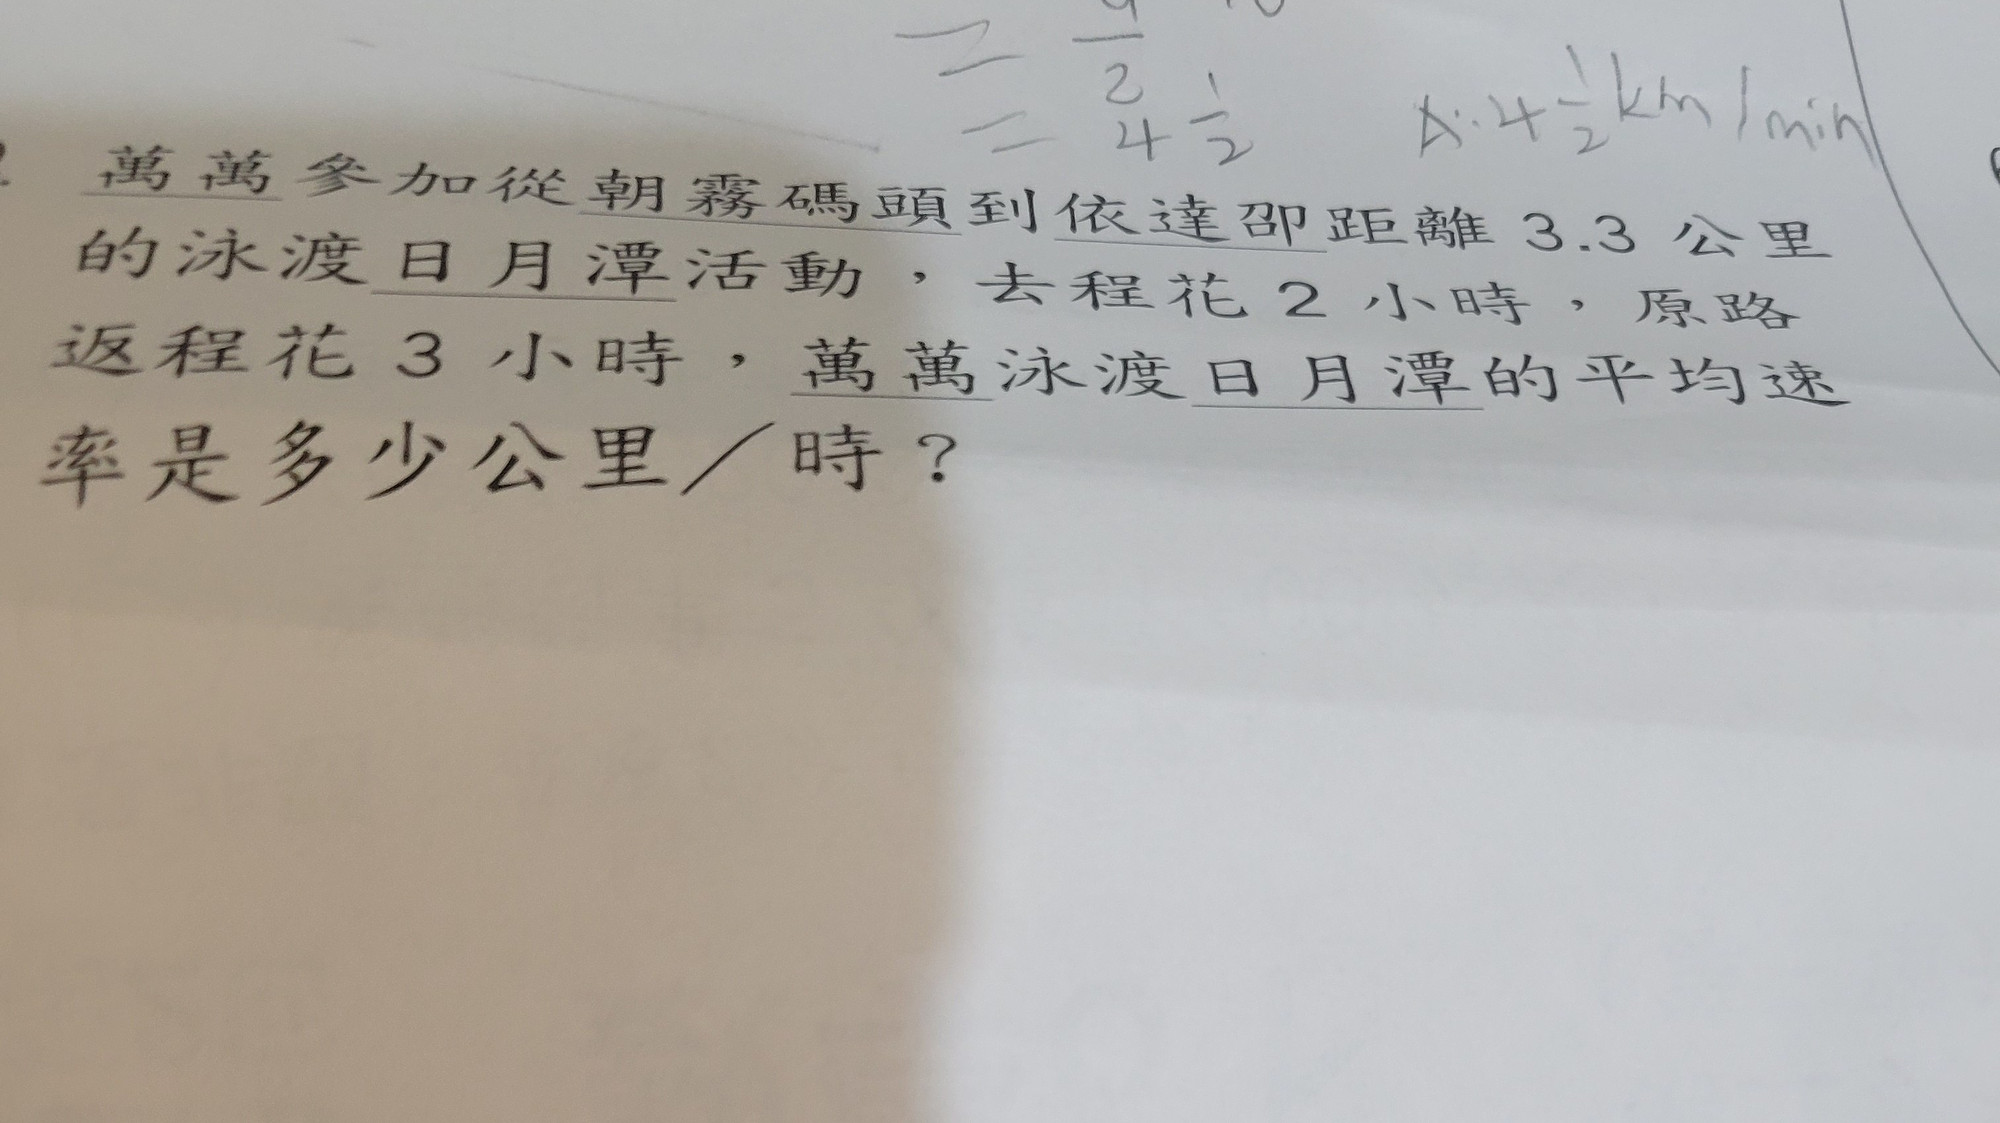 =
2
= 4 1/2  A: 4 1/2 km/min
萬萬參加從朝霧碼頭到依達邵距離 3.3 公里
的泳渡日月潭活動，去程花 2 小時，原路
返程花 3 小時，萬萬泳渡日月潭的平均速
率是多少公里／時？